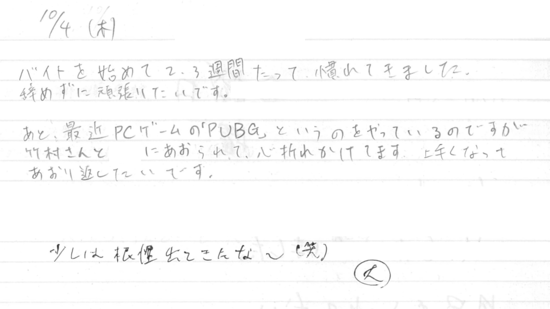 10/4 (木)
バイトを始めて2,3週間たって、慣れてきました。
辞めずに頑張りたいです。
あと、最近PCゲームの「PUBG」というのをやっているのですが
竹村さんと にあおられて、心折れかけてます。上手くなって
あおり返したいです。
少しは根性出てきたな〜(笑)